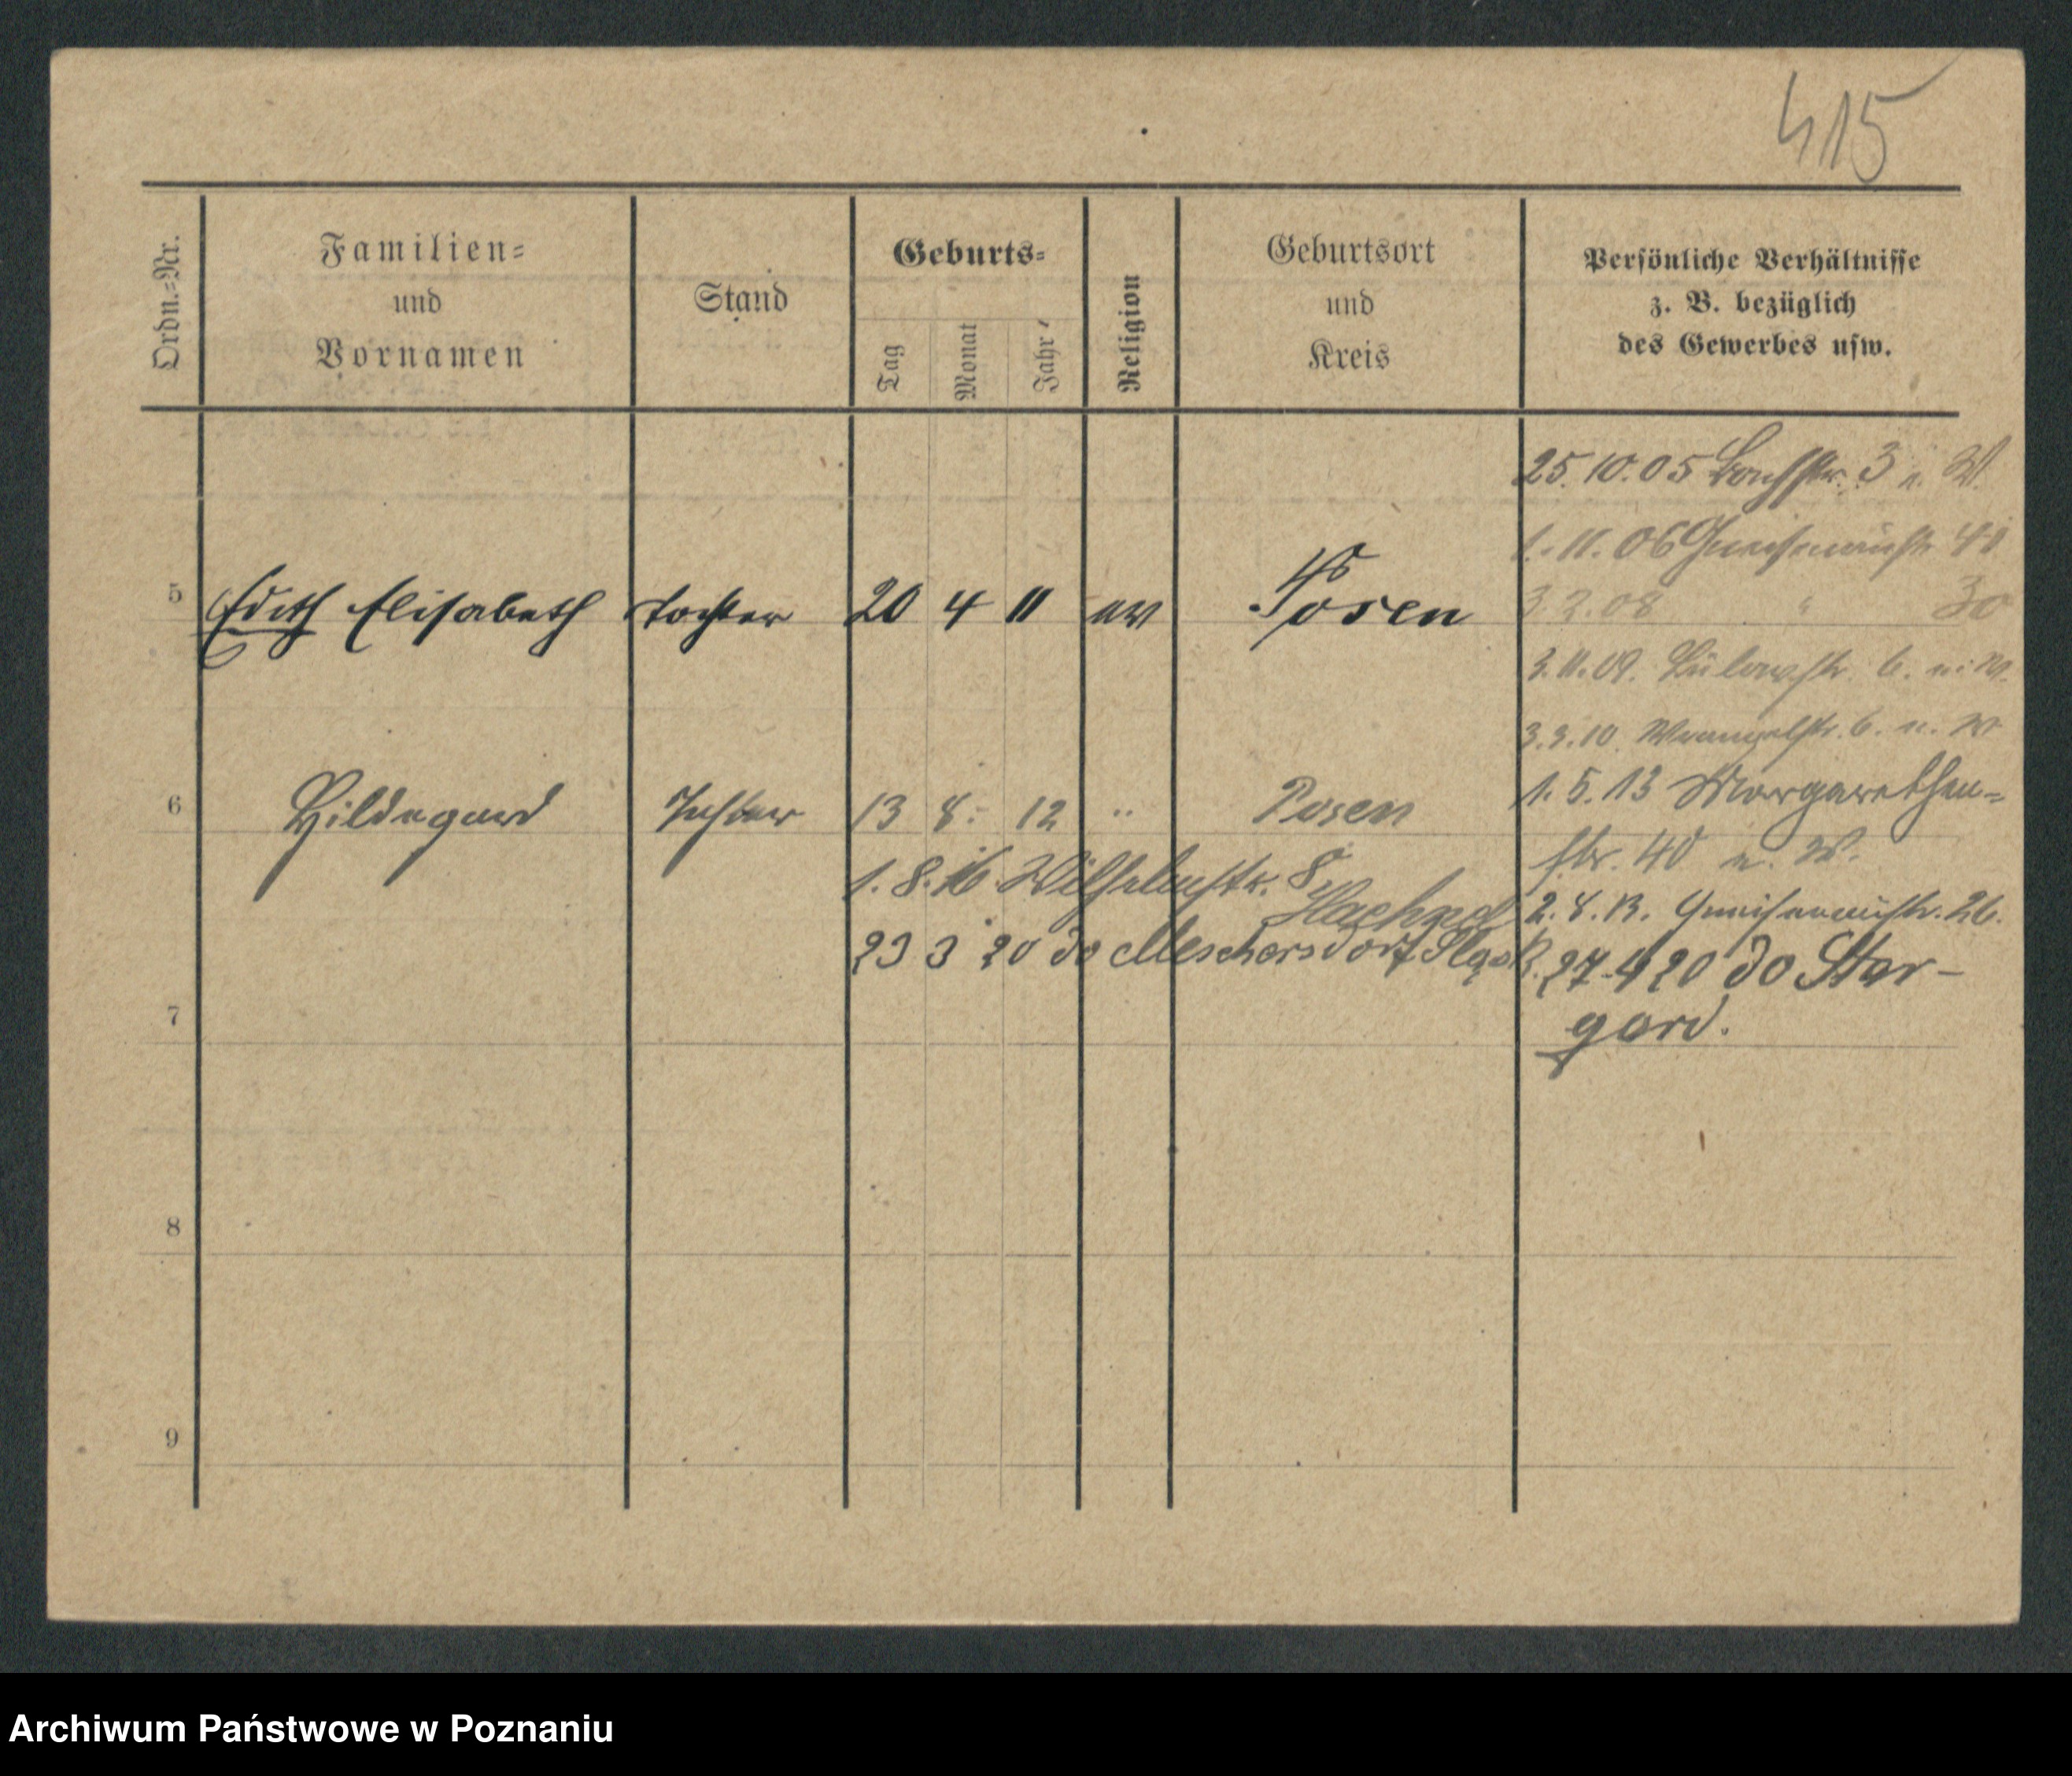 415
Ordn.=Nr.
Familien=
und
Vornamen
Stand
Geburts=
Tag
Monat
Jahr
Religion
Geburtsort
und
Kreis
Persönliche Verhältnisse
z. B. bezüglich
des Gewerbes usw.
25. 10. 05 3 u. W.
1. 11. 06 Gneisenaustr. 41
5 Edith Elisabeth Tochter 20 4 11 ev Posen
3. 2. 08 " 30
3. 11. 09. Bülowstr. 6. u. W.
3. 3. 10 Wrangelstr. 6. u. W
6 Hildegard Tochter 13 8. 12 " Posen
1. 5. 13 Margarethen=
str. 40 u. W.
1. 8. 16 Wilhelmstr. 8,
2. 8. 13. Gneisenaustr. 26.
23 3 20 do Meschersdorf
27. 4 20 do Star-
gard.
7
8
9
Archiwum Państwowe w Poznaniu